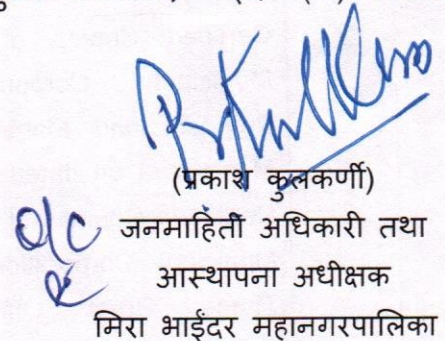 (प्रकाश कुलकर्णी)
O/C जनमाहिती अधिकारी तथा
आस्थापना अधीक्षक
मिरा भाईंदर महानगरपालिका